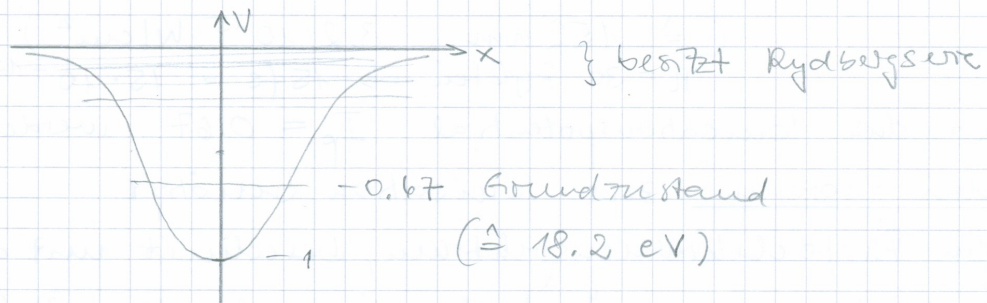 V
x
} besitzt Rydbergserie
-0.67 Grundzustand
(≙ 18.2 eV)
-1